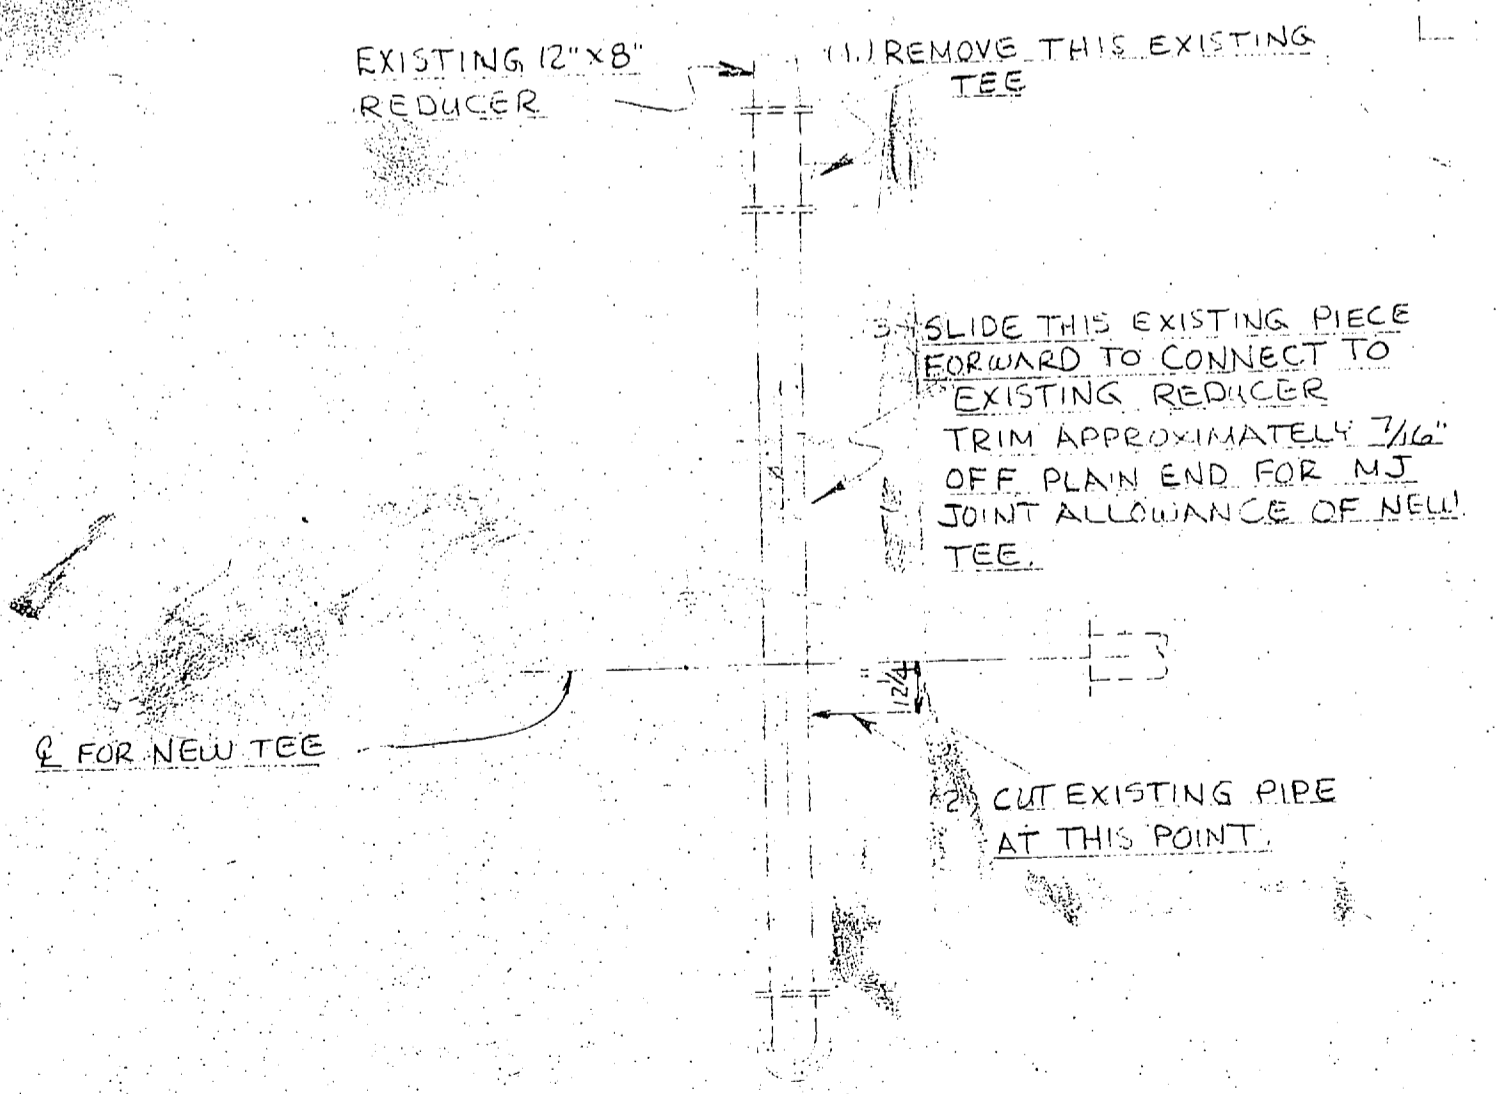 EXISTING 12" x 8"
REDUCER
(1.) REMOVE THIS EXISTING
TEE
3. SLIDE THIS EXISTING PIECE
FORWARD TO CONNECT TO
EXISTING REDUCER
TRIM APPROXIMATELY 7/16"
OFF PLAIN END FOR MJ
JOINT ALLOWANCE OF NEW
TEE.
12 1/4"
℄ FOR NEW TEE
2) CUT EXISTING PIPE
AT THIS POINT.